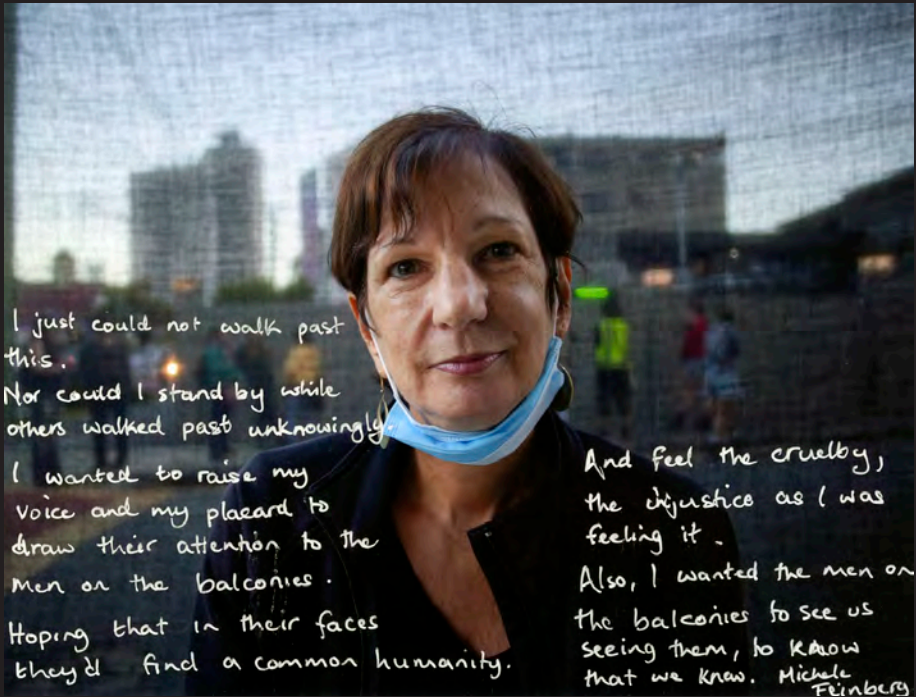 I just could not walk past
this.
Nor could I stand by while
others walked past unknowingly.
I wanted to raise my
voice and my placard to
draw their attention to the
men on the balconies.
Hoping that in their faces
they'd find a common humanity.
And feel the cruelty,
the injustice as I was
feeling it.
Also, I wanted the men on
the balconies to see us
seeing them, to know
that we know. Michele
Feinberg